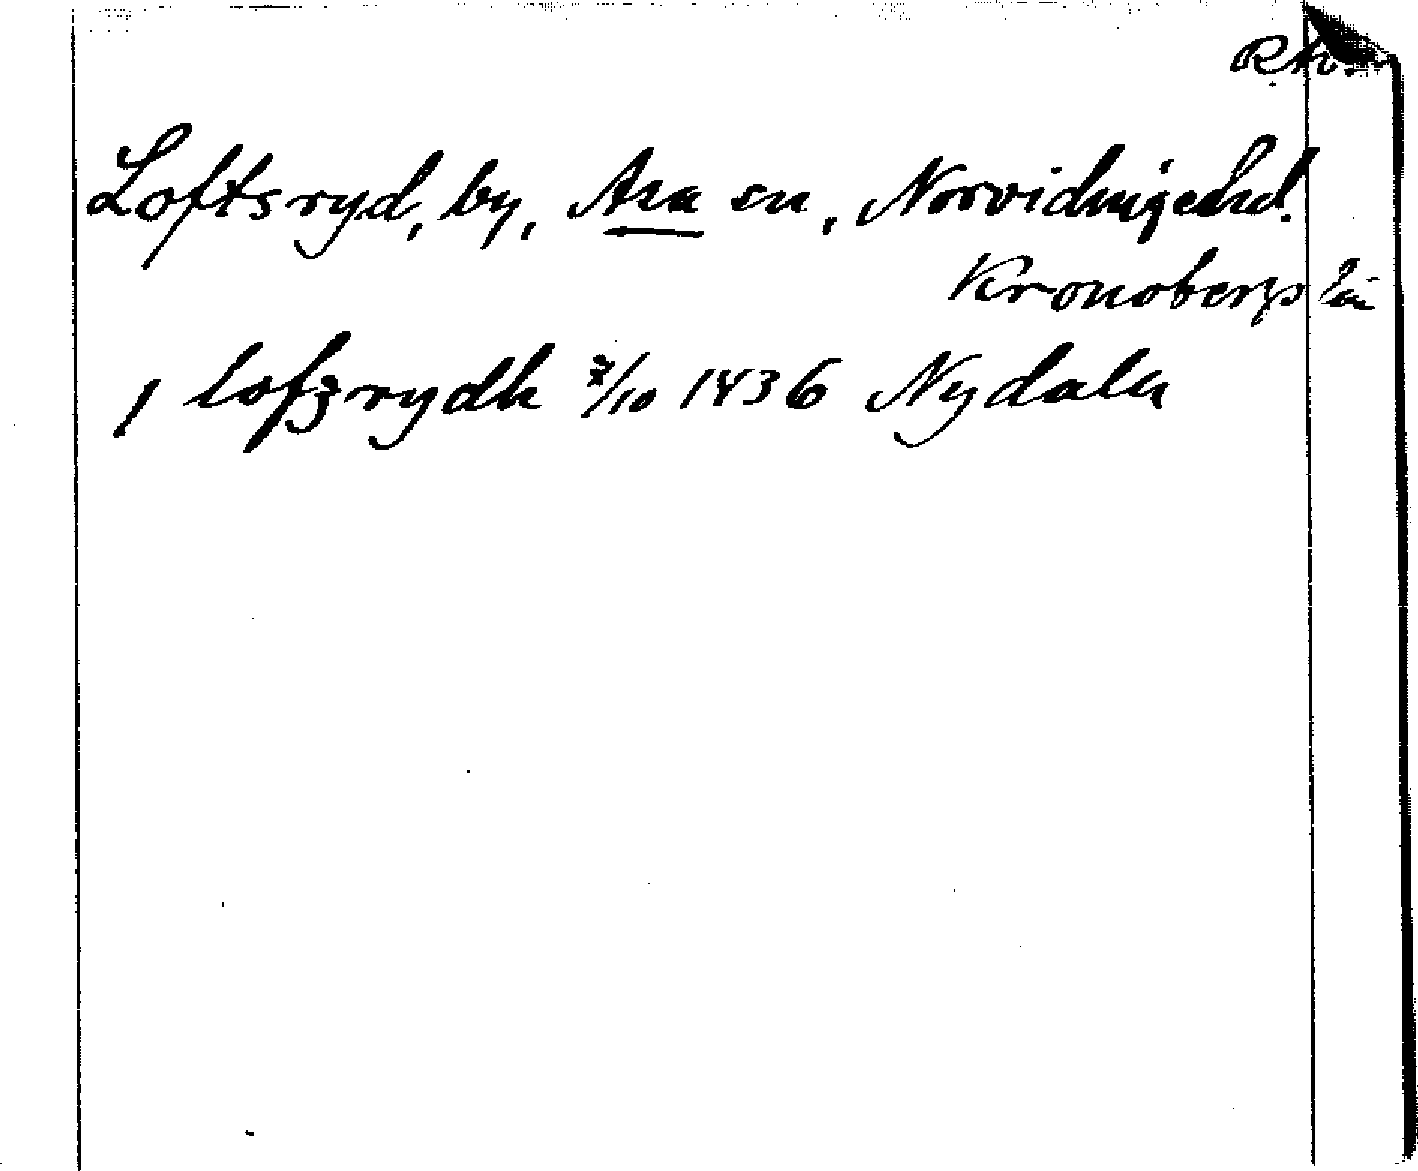 Loftsryd, by, Asa sn, Norvidinge hd.
Kronobergs län
J lofzrydh /10 1436 Nydala